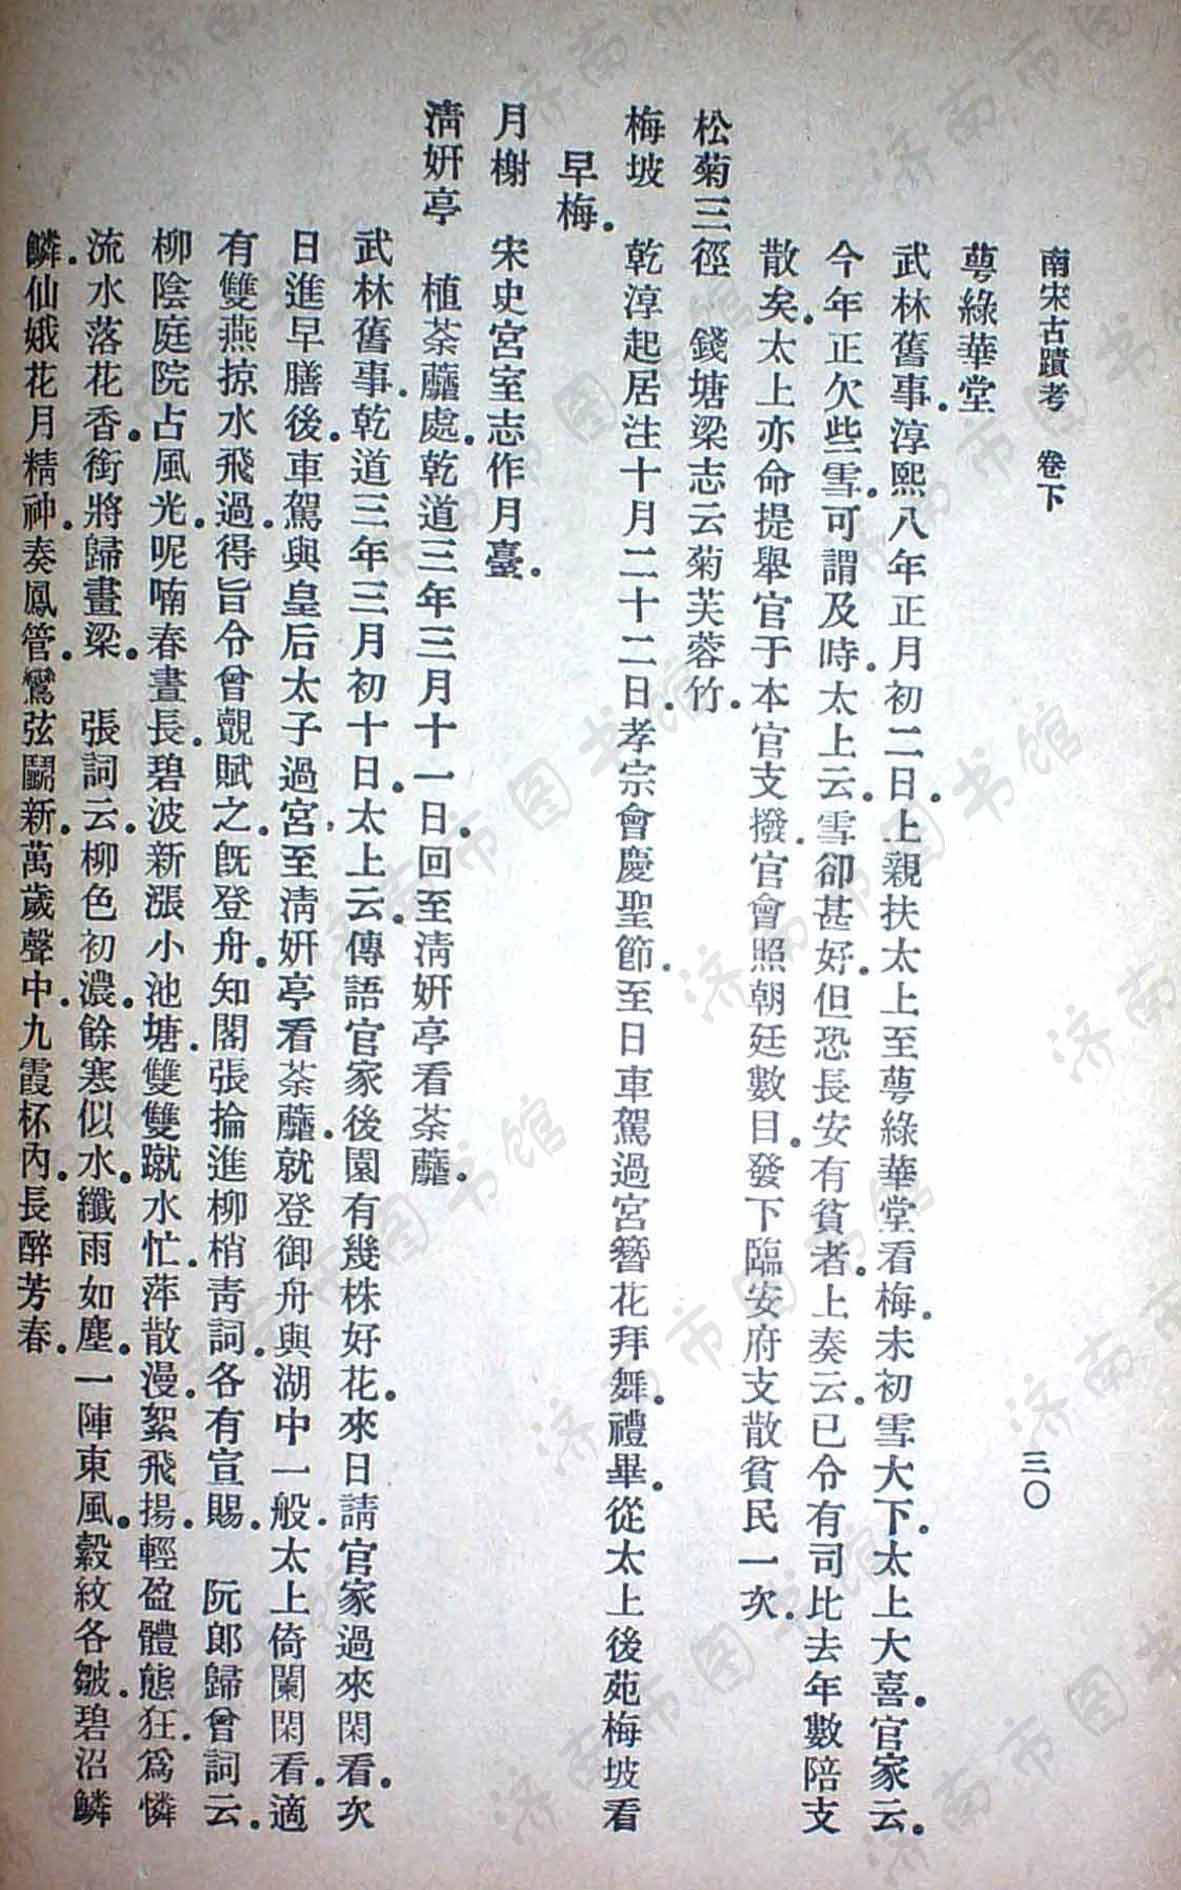 南宋古蹟考　卷下　三〇
萼綠華堂
武林舊事．淳熙八年正月初二日．上親扶太上至萼綠華堂看梅．未初雪大下．太上大喜．官家云．
今年正欠些雪．可謂及時．太上云．雪卻甚好．但恐長安有貧者．上奏云．已令有司比去年數陪支
散矣．太上亦命提舉官于本官支撥．官會照朝廷數目．發下臨安府支散貧民一次．
松菊三徑　錢塘梁志云菊芙蓉竹．
梅坡　乾淳起居注十月二十二日．孝宗會慶聖節．至日車駕過宮簪花拜舞．禮畢．從太上後苑梅坡看
早梅．
月榭　宋史宮室志作月臺．
清妍亭　植荼蘼處．乾道三年三月十一日．回至清妍亭看荼蘼．
武林舊事．乾道三年三月初十日．太上云．傳語官家後園有幾株好花．來日請官家過來閑看．次
日進早膳後．車駕與皇后太子過宮．至清妍亭看荼蘼．就登御舟與湖中一般．太上倚闌閑看．適
有雙燕掠水飛過．得旨令曾覿賦之．旣登舟．知閣張掄進柳梢青詞．各有宣賜．　阮郎歸曾詞云．
柳陰庭院占風光．呢喃春晝長．碧波新漲小池塘．雙雙蹴水忙．萍散漫．絮飛揚．輕盈體態狂．爲憐
流水落花香．銜將歸畫梁．　張詞云．柳色初濃．餘寒似水．纖雨如塵．一陣東風．縠紋各皺．碧沼鱗
鱗．仙娥花月精神．奏鳳管．鸞弦鬭新．萬歲聲中．九霞杯內．長醉芳春．
济南市图书馆